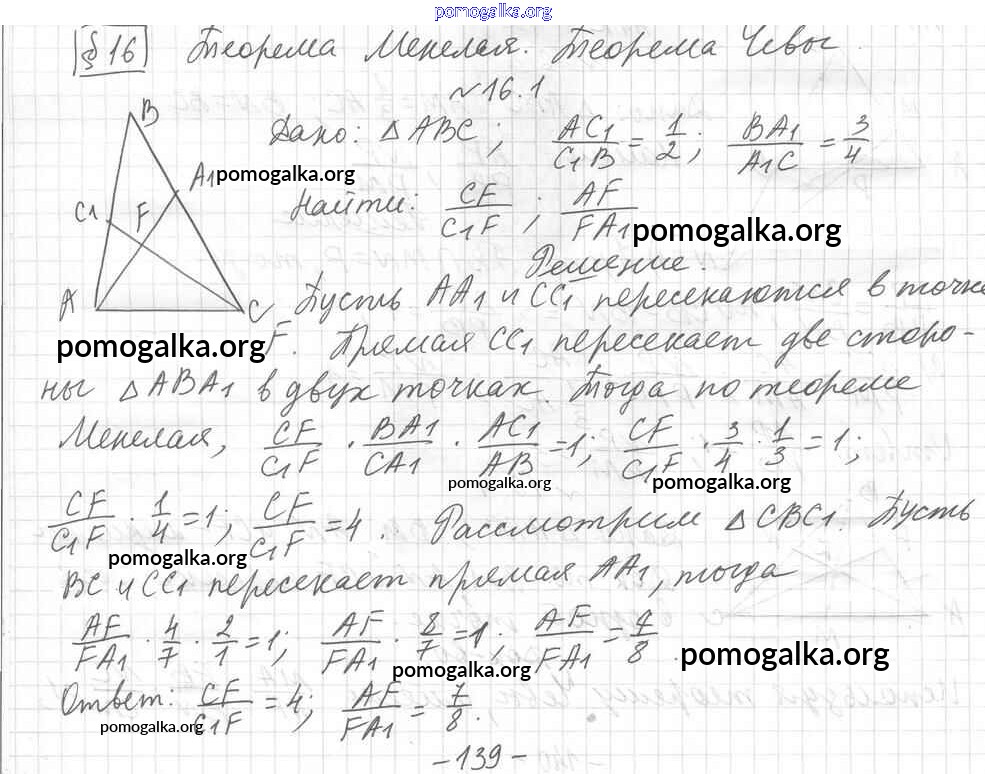 pomogalka.org
§ 16 Теорема Менелая. Теорема Чевы
№16.1
B
Дано: △ABC; AC1/C1B = 1/2; BA1/A1C = 3/4
A1 pomogalka.org
C1 F Найти: CF/C1F; AF/FA1
pomogalka.org
Решение.
A C Пусть AA1 и CC1 пересекаются в точке
pomogalka.org F. Прямая CC1 пересекает две сторо-
ны △ABA1 в двух точках. Тогда по теореме
Менелая, CF/C1F · BA1/CA1 · AC1/AB = 1; CF/C1F · 3/4 · 1/3 = 1;
pomogalka.org pomogalka.org
CF/C1F · 1/4 = 1; CF/C1F = 4. Рассмотрим △CBC1. Пусть
pomogalka.org
BC и CC1 пересекает прямая AA1, тогда
AF/FA1 · 4/7 · 2/1 = 1; AF/FA1 · 8/7 = 1; AF/FA1 = 7/8
pomogalka.org pomogalka.org
Ответ: CF/C1F = 4; AF/FA1 = 7/8.
pomogalka.org
-139-